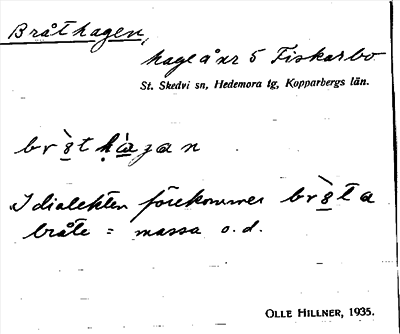 Bråthagen,
hage å nr 5 Fiskarbo
St. Skedvi sn, Hedemora tg, Kopparbergs län.
br̀ɜt hàgan
I dialekten förekommer br̀ɜta
bråte = massa o.d.
OLLE HILLNER, 1935.